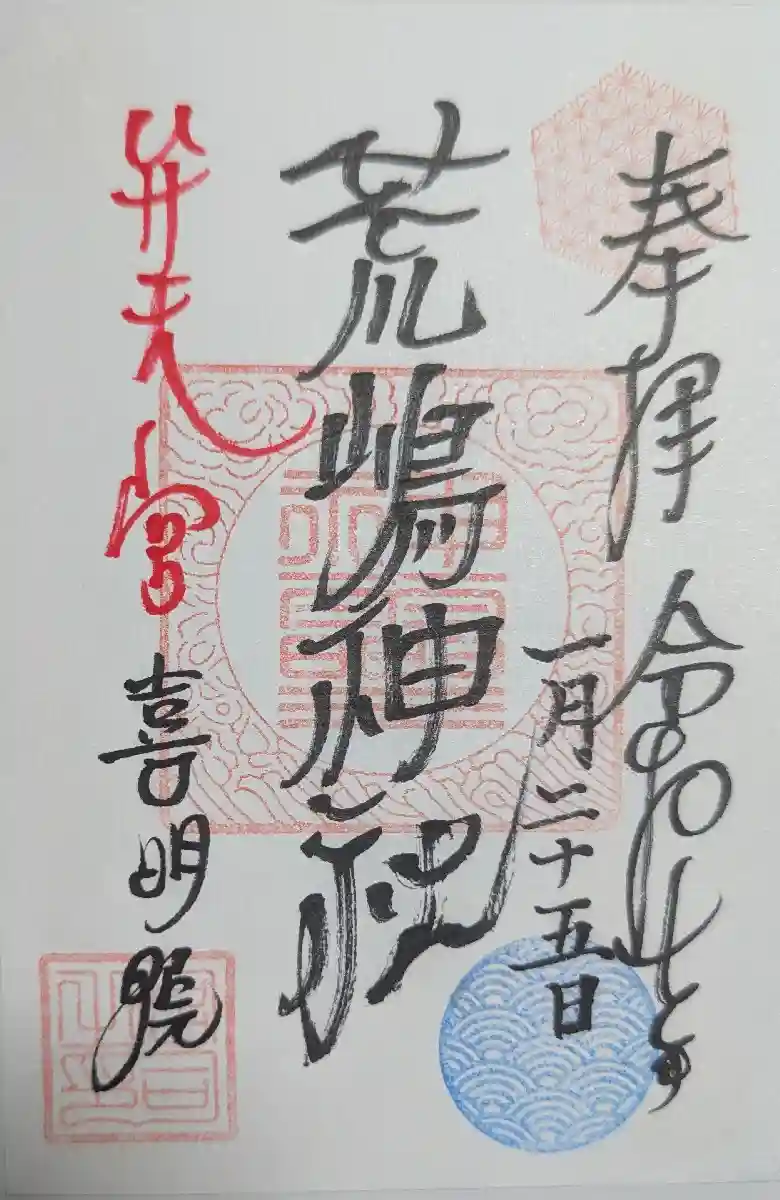 奉拝 令和七年
一月二十五日
荒嶋神社
弁天宮
喜明院